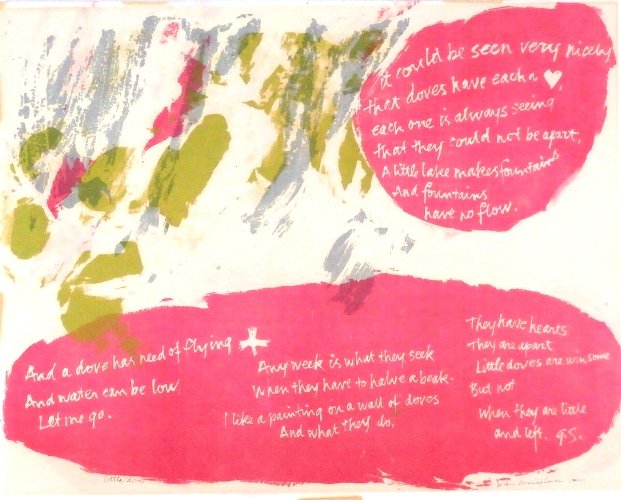 it could be seen very nicely
that doves have each a ♥,
each one is always seeing
that they could not be apart,
A little lake makes fountains
And fountains
have no flow.
And a dove has need of flying
And water can be low
Let me go.
Any week is what they seek
When they have to halve a beak.
I like a painting on a wall of doves
And what they do.
They have hearts
They are apart
Little doves are winsome
But not
When they are little
and left. G.S.
little doves